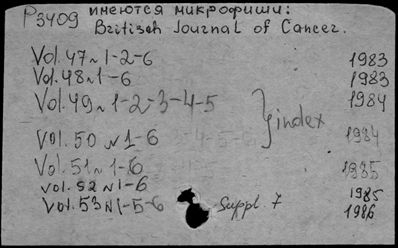 P3409 имеются микрофиши:
British Journal of Cancer.
Vol. 47 N 1-2-6 1983
Vol. 48 N 1-6 1983
Vol. 49 N 1-2-3-4-5 1984
} index
Vol. 50 N 1-6 1984
Vol. 51 N 1-6 1985
Vol. 52 N 1-6 1985
Vol. 53 N 1-5-6 Suppl. 7 1986